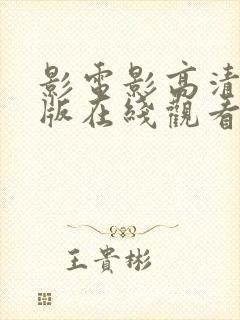 影電影高清
版在綫觀看
王貴彬